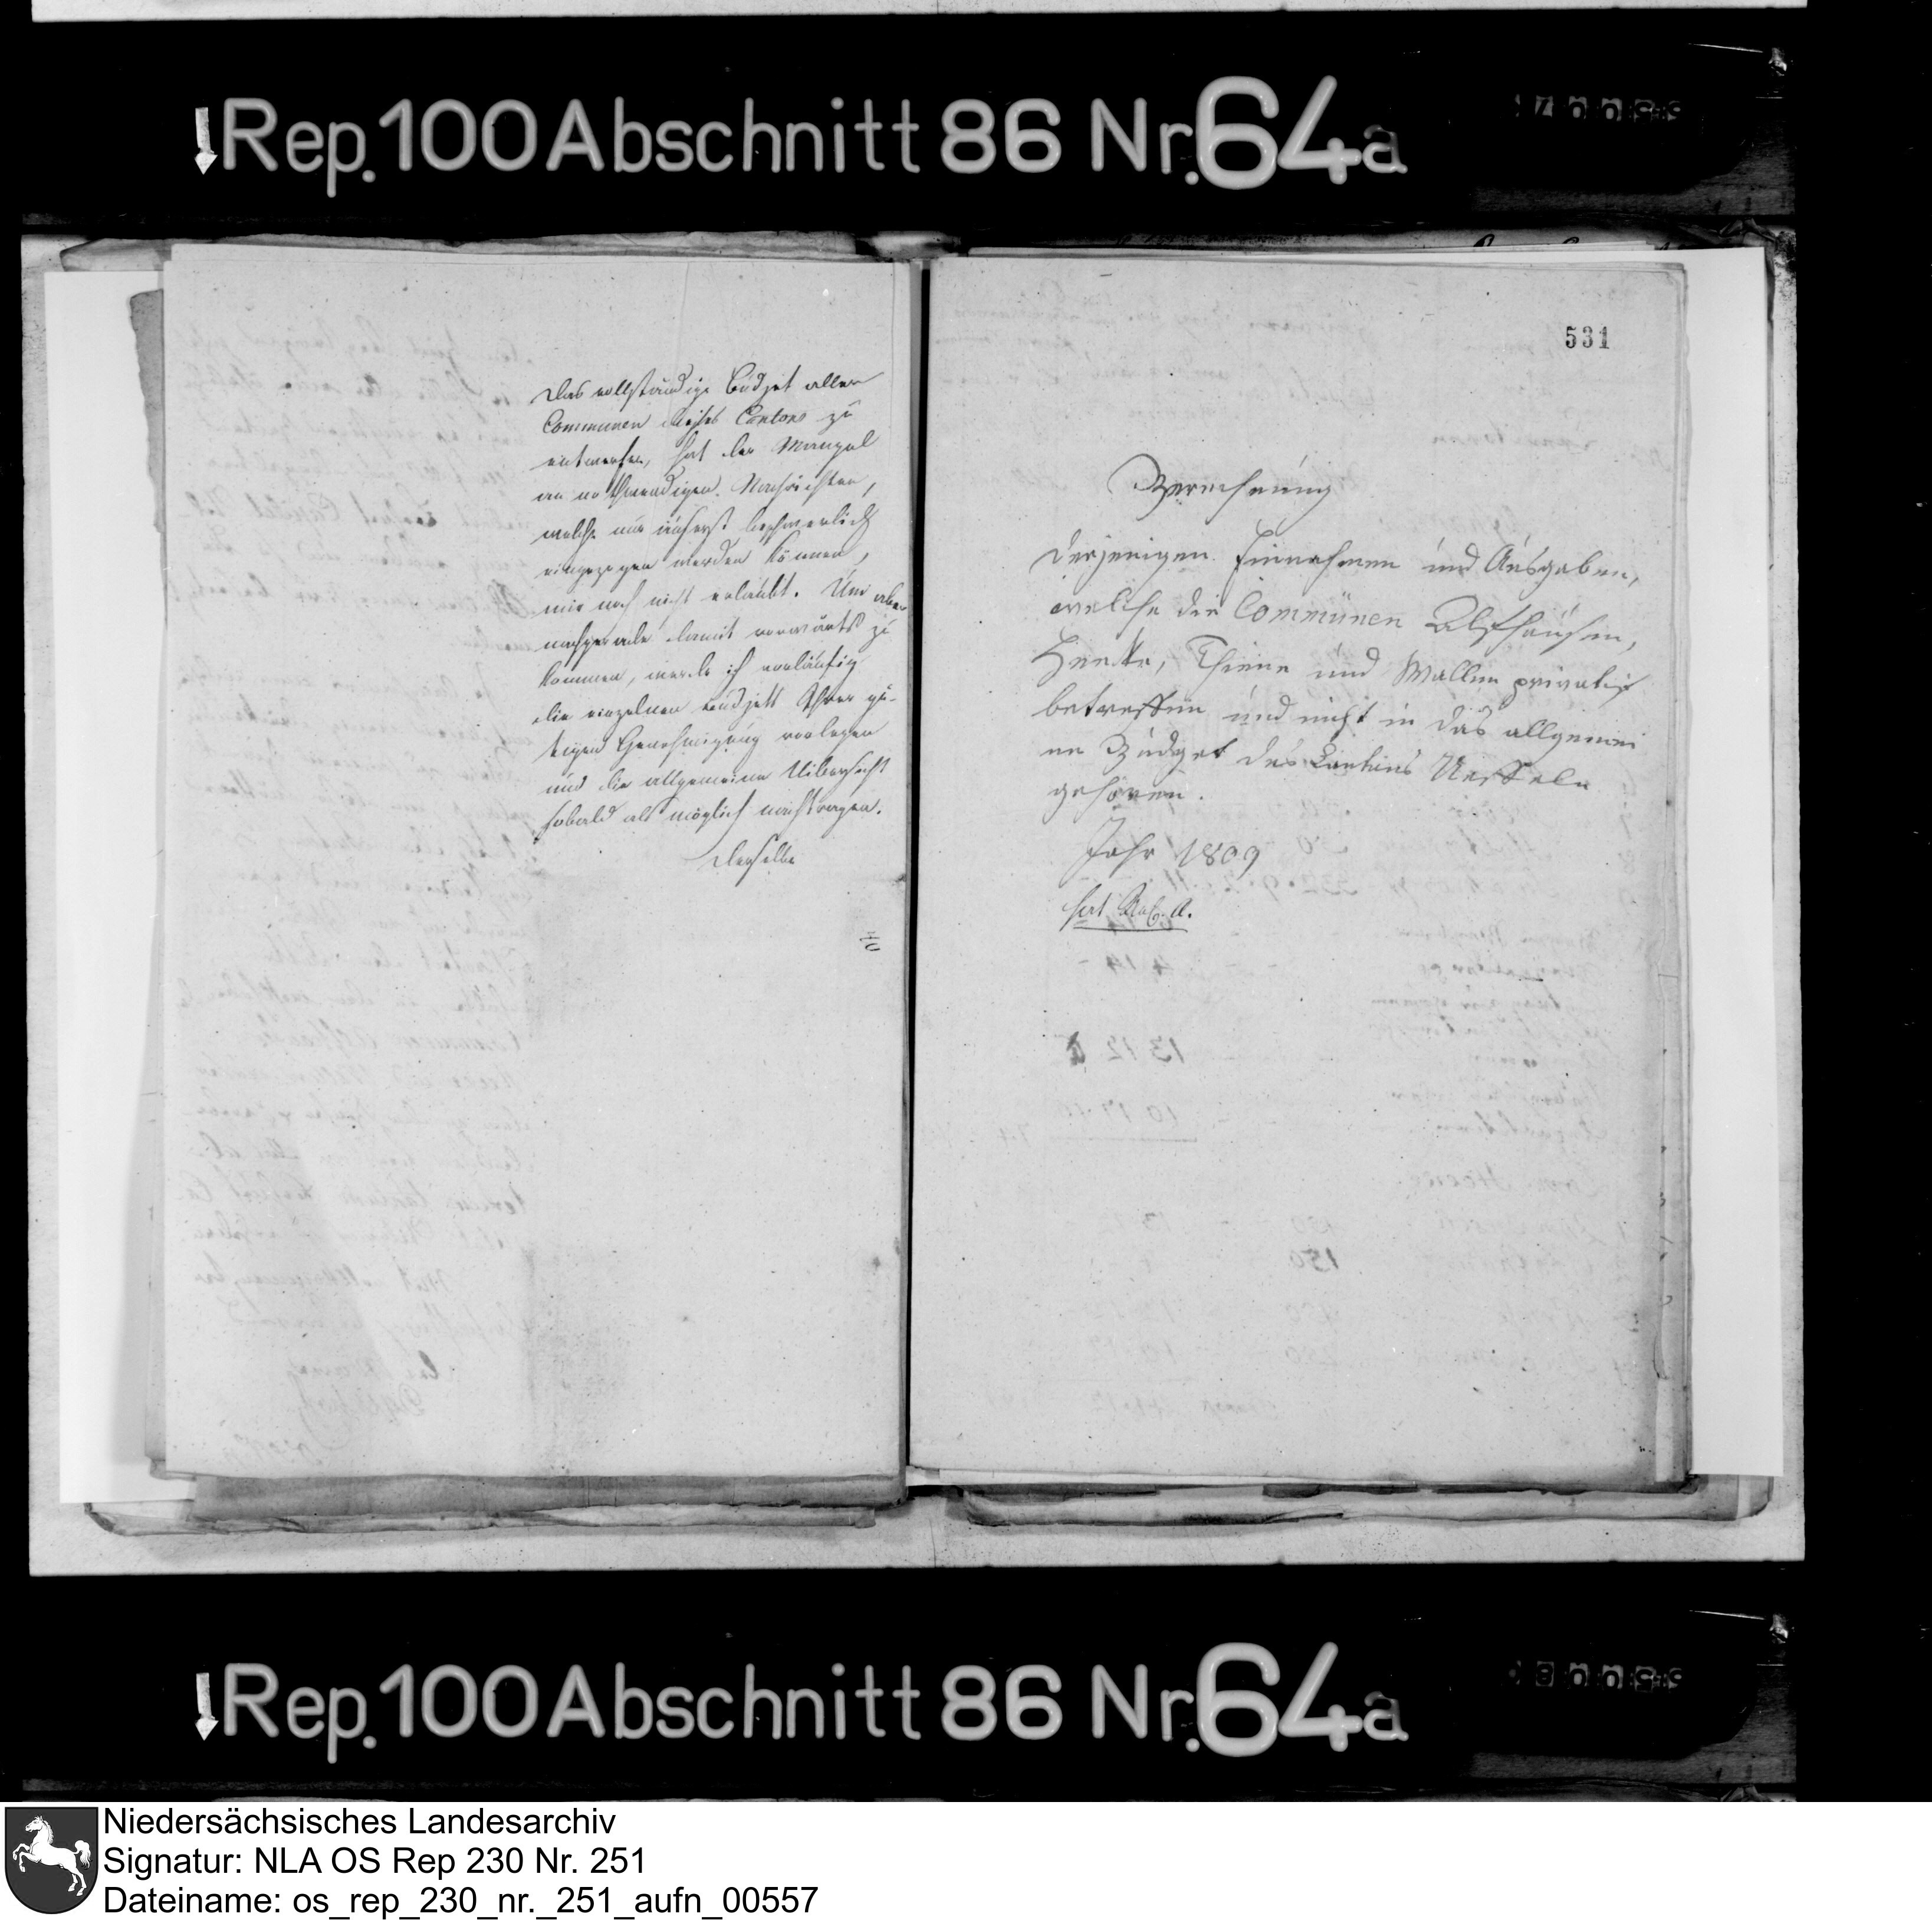 Rep. 100 Abschnitt 86 Nr. 64a
Das vollständige Büdjet aller
Communen dieses Cantons zu
entwerfen, hat der Mangel
an nothwendigen Nachrichten,
welche nur äußerst beschwerlich
eingezogen werden können,
mir noch nicht erlaubt. Um aber
nachgerade damit vorwärts zu
kommen, werde ich vorläufig
die einzelnen büdjett Ihrer gü-
tigen Genehmigung vorlegen
und die allgemeine Uibersicht
sobald als möglich nachtragen.
Derselbe
531
Berechnung
derjenigen Einnahmen und Ausgaben,
welche die Communen Alfhausen,
Heeke, Thiene und Wallen privative
betreffen und nicht in das allgemei
ne Büdget des Cantons Ueffeln
gehören.
Jahr 1809
A.
Rep. 100 Abschnitt 86 Nr. 64a
Niedersächsisches Landesarchiv
Signatur: NLA OS Rep 230 Nr. 251
Dateiname: os_rep_230_nr._251_aufn_00557